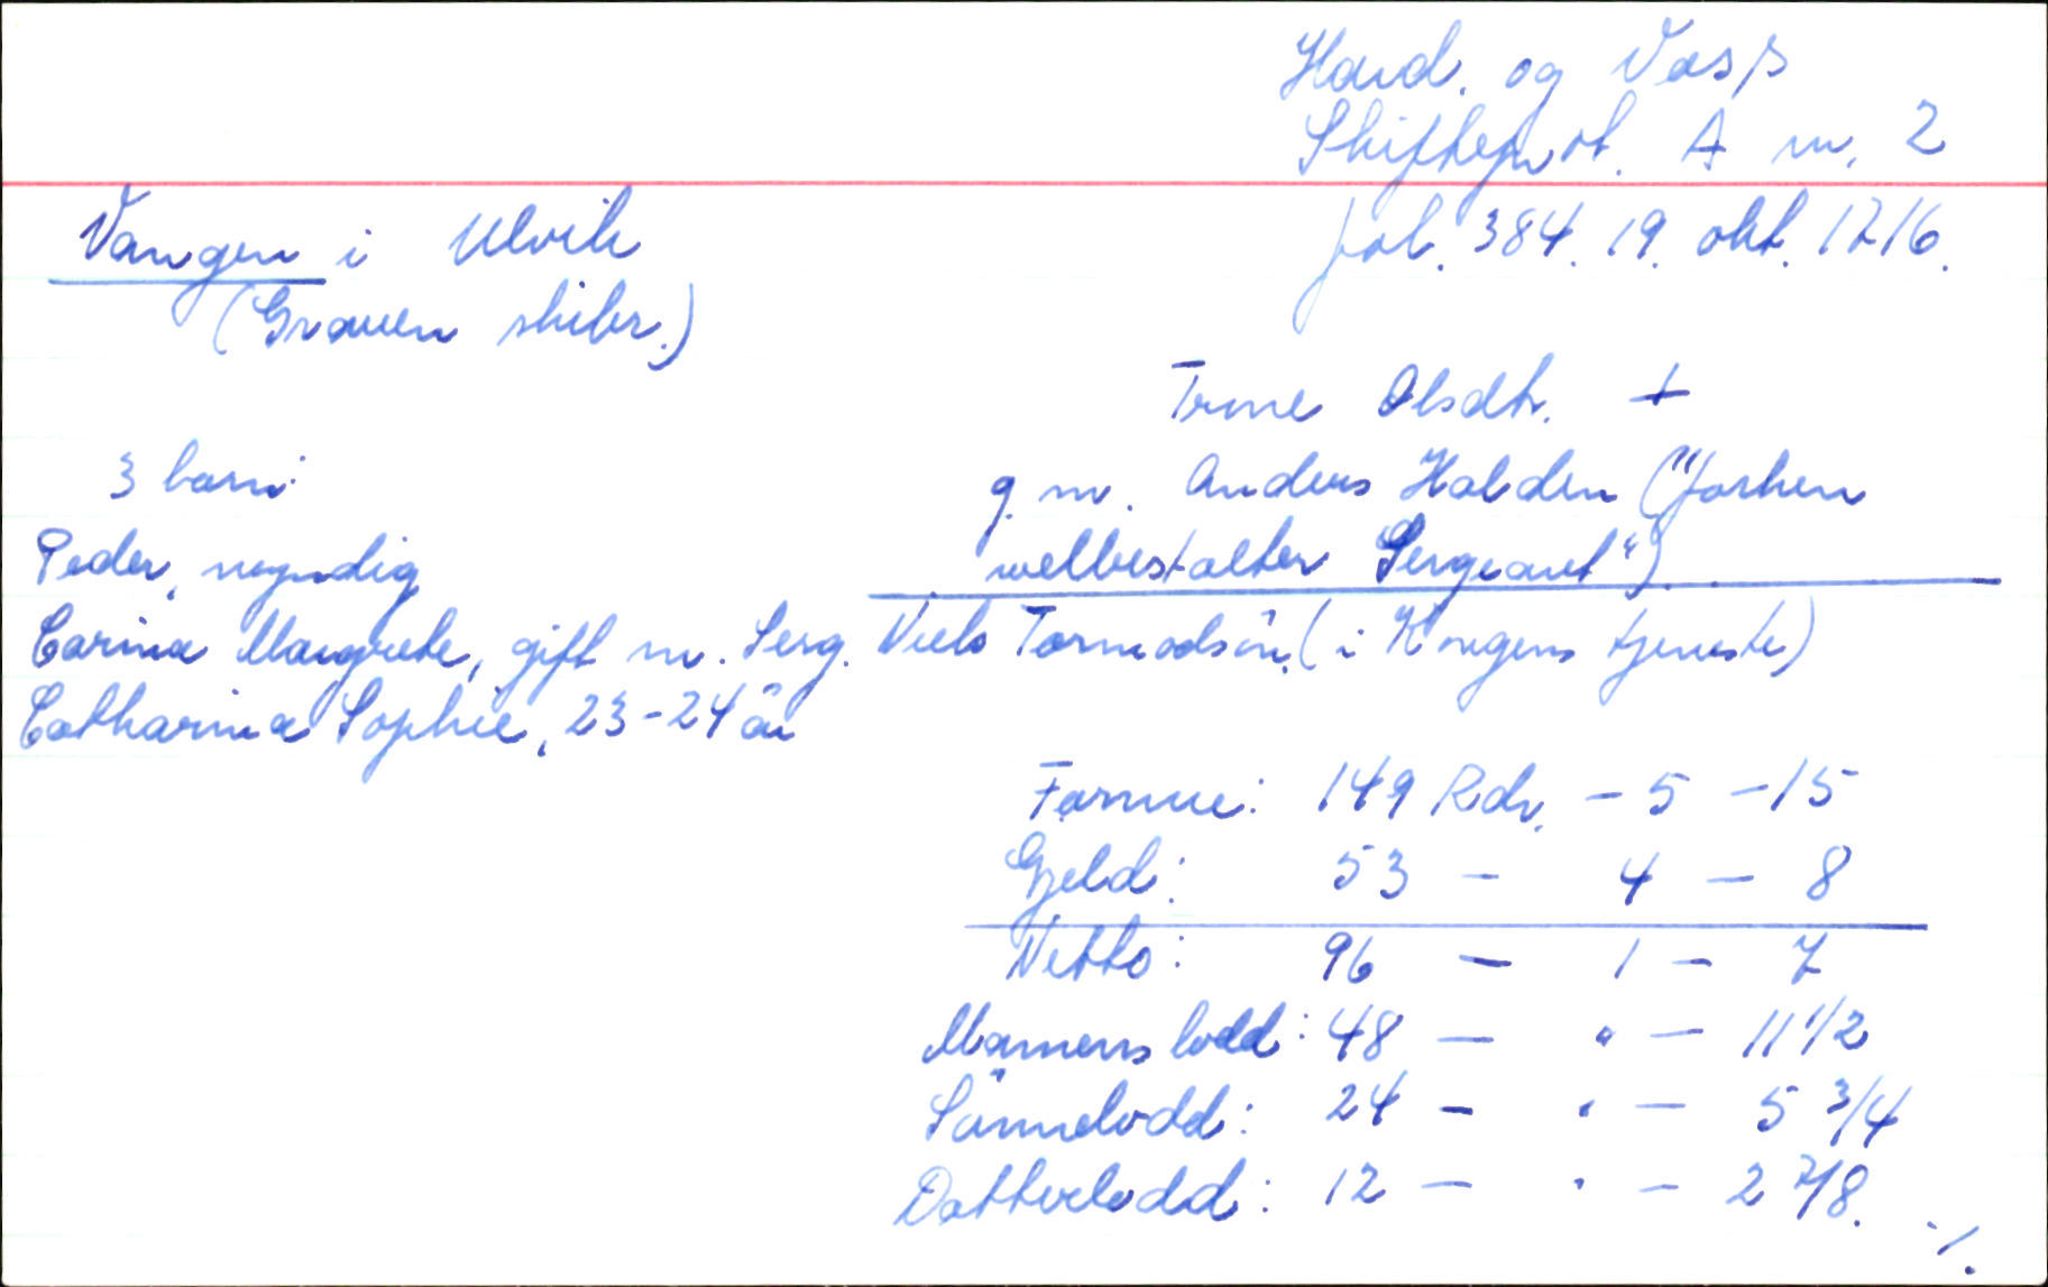 Hard. og Voss
Skifteprot. A nr. 2
fol. 384. 19. okt. 1716.
Vangen i Ulvik
(Graven skibr.)
Trine Olsdtr. +
g. m. Anders Halden ("forhen
welbestalter Sergeant").
3 barn:
Peder, myndig
Carina Margrete, gift m. Serg. Niels Tormodsön. (i Kongens tjeneste)
Catharina Sophie, 23-24 år
Formue: 149 Rdr. - 5 - 15
Gjeld: 53 - 4 - 8
Netto: 96 - 1 - 7
Mannens lodd: 48 - " - 11 1/2
Sönnelodd: 24 - " - 5 3/4
Datterlodd: 12 - " - 2 7/8. ./.